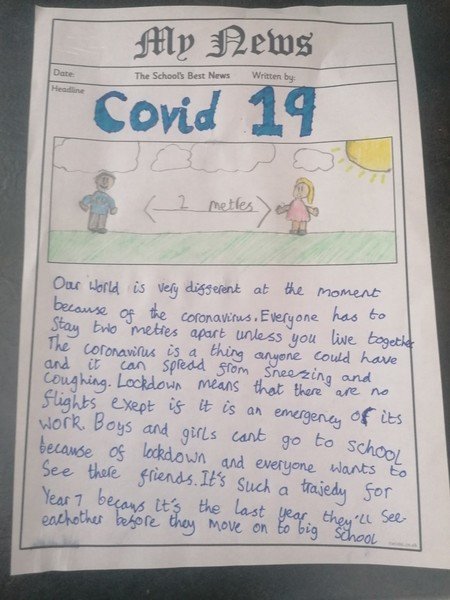 My News
Date: The School's Best News Written by:
Headline
Covid 19
2 metres
Our world is very different at the moment
because of the coronavirus. Everyone has to
Stay two metres apart unless you live together
The coronavirus is a thing anyone could have
and it can spread from Sneezing and
Coughing. Lockdown means that there are no
flights exept if it is an emergency or its
work. Boys and girls cant go to school
because of lockdown and everyone wants to
See there friends. It's Such a trajedy for
Year 7 becaus it's the last year they'll see
eachother before they move on to big School